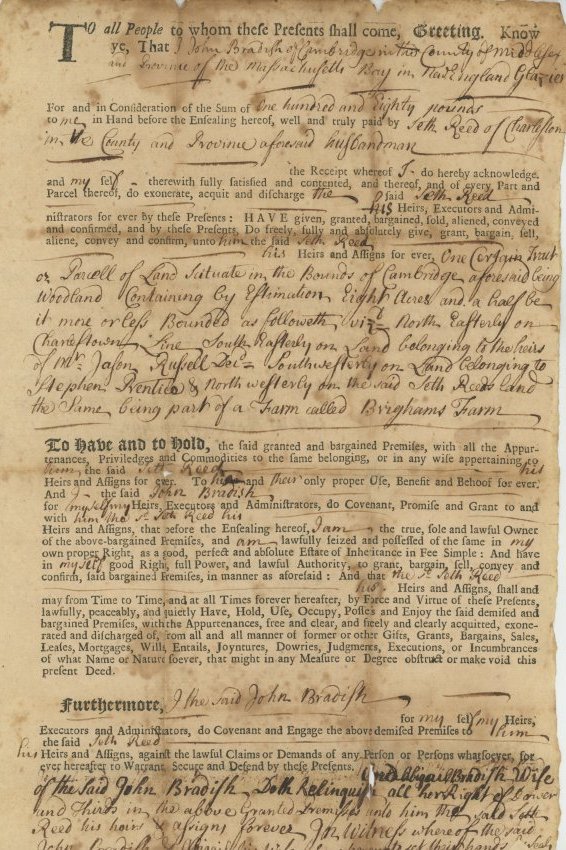 TO all People to whom these Presents shall come, Greeting. Know
ye, That I John Bradish of Cambridge in the County of Middlesex
and Province of the Massachusetts Bay in New England Glazier
For and in Consideration of the Sum of One hundred and Eighty pounds
to me in Hand before the Ensealing hereof, well and truly paid by Seth Reed of Charlestown
in the County and Province aforesaid husbandman
the Receipt whereof I do hereby acknowledge.
and my self therewith fully satisfied and contented, and thereof, and of every Part and
Parcel thereof, do exonerate, acquit and discharge the said Seth Reed
his Heirs, Executors and Admi-
nistrators for ever by these Presents: HAVE given, granted, bargained, sold, aliened, conveyed
and confirmed, and by these Presents, Do freely, fully and absolutely give, grant, bargain, sell,
aliene, convey and confirm, unto him the said Seth Reed
his Heirs and Assigns for ever, One Certain Tract
or Parcell of Land Situate in the Bounds of Cambridge aforesaid being
Woodland Containing by Estimation Eight Acres and a half be
it more or less Bounded as followeth vizt North Easterly on
Charlestown Line South Easterly on Land belonging to the heirs
of Mr Jason Rusell Decd Southwesterly on Land belonging to
Stephen Prentice & North westerly on the said Seth Reeds land
the Same being part of a Farm called Brighams Farm
To Have and to Hold, the said granted and bargained Premises, with all the Appur-
tenances, Priviledges and Commodities to the same belonging, or in any wise appertaining to
him, the said Seth Reed his
Heirs and Assigns for ever. To his and their only proper Use, Benefit and Behoof for ever.
And I the said John Bradish,
for my self my Heirs, Executors and Administrators, do Covenant, Promise and Grant to and
with him the sd Seth Reed his
Heirs and Assigns, that before the Ensealing hereof, I am the true, sole and lawful Owner
of the above-bargained Premises, and am lawfully seized and possessed of the same in my
own proper Right, as a good, perfect and absolute Estate of Inheritance in Fee Simple: And have
in my self good Right, full Power, and lawful Authority, to grant, bargain, sell, convey and
confirm, said bargained Premises, in manner as aforesaid: And that the sd Seth Reed
his Heirs and Assigns, shall and
may from Time to Time, and at all Times forever hereafter, by Force and Virtue of these Presents,
lawfully, peaceably, and quietly Have, Hold, Use, Occupy, Possess and Enjoy the said demised and
bargained Premises, with the Appurtenances, free and clear, and freely and clearly acquitted, exone-
rated and discharged of, from all and all manner of former or other Gifts, Grants, Bargains, Sales,
Leases, Mortgages, Wills, Entails, Joyntures, Dowries, Judgments, Executions, or Incumbrances
of what Name or Nature soever, that might in any Measure or Degree obstruct or make void this
present Deed.
Furthermore, I the said John Bradish
for my self my Heirs,
Executors and Administrators, do Covenant and Engage the above demised Premises to him
the said Seth Reed
his Heirs and Assigns, against the lawful Claims or Demands of any Person or Persons whatsoever, for
ever hereafter to Warrant, Secure and Defend by these Presents. And Abigail Bradish Wife
of the Said John Bradish Doth Relinquish all her Right of Dower
and Thirds in the above Granted Premisses unto him the said Seth
Reed his heirs & assigns forever In Witness whereof the said